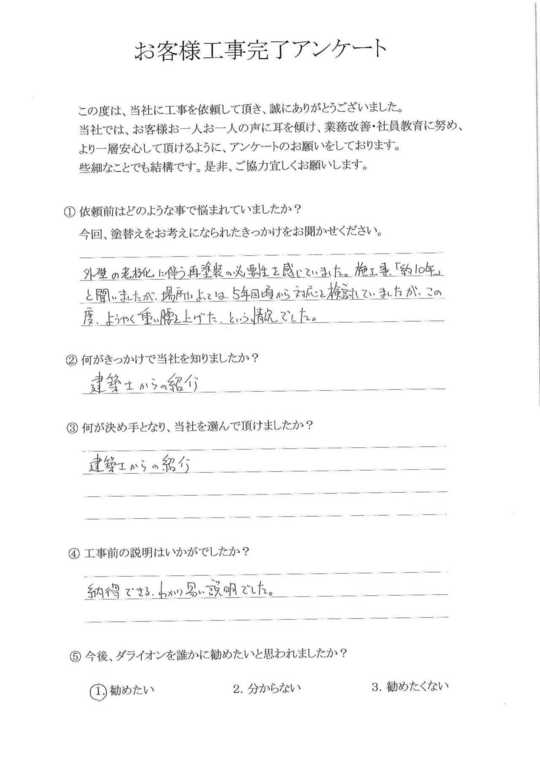 お客様工事完了アンケート
この度は、当社に工事を依頼して頂き、誠にありがとうございました。
当社では、お客様お一人お一人の声に耳を傾け、業務改善・社員教育に努め、
より一層安心して頂けるように、アンケートのお願いをしております。
些細なことでも結構です。是非、ご協力宜しくお願いします。
① 依頼前はどのような事で悩まれていましたか?
今回、塗替えをお考えになられたきっかけをお聞かせください。
外壁の老朽化に伴う再塗装の必要性を感じていました。施工事「約10年」
と聞いましたが、場所によっては5年目頃から対応を検討していましたが、この
度、ようやく重い腰を上げた、という状況でした。
② 何がきっかけで当社を知りましたか?
建築士からの紹介
③ 何が決め手となり、当社を選んで頂けましたか?
建築士からの紹介
④ 工事前の説明はいかがでしたか?
納得できる、わかり易い説明でした。
⑤ 今後、ダライオンを誰かに勧めたいと思われましたか?
1. 勧めたい 2. 分からない 3. 勧めたくない